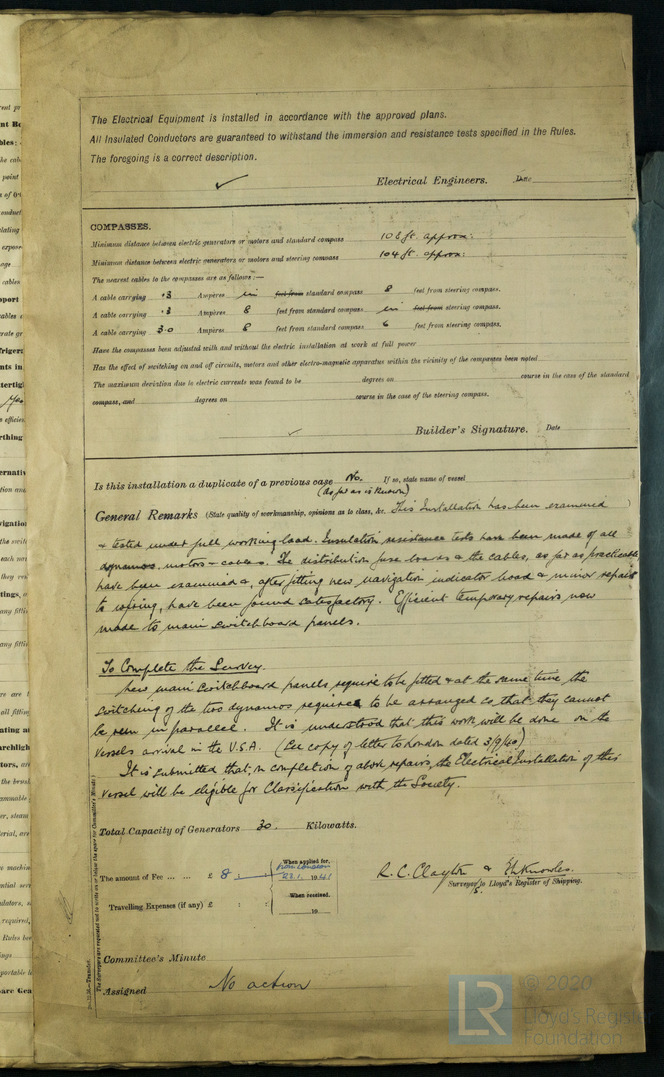 The Electrical Equipment is installed in accordance with the approved plans.
All Insulated Conductors are guaranteed to withstand the immersion and resistance tests specified in the Rules.
The foregoing is a correct description.
Electrical Engineers. Date
COMPASSES.
Minimum distance between electric generators or motors and standard compass 108 ft. approx:
Minimum distance between electric generators or motors and steering compass 104 ft. approx:
The nearest cables to the compasses are as follows:—
A cable carrying .3 Ampères in feet from standard compass 8 feet from steering compass.
A cable carrying .3 Ampères 8 feet from standard compass in feet from steering compass.
A cable carrying 3.0 Ampères 8 feet from standard compass 6 feet from steering compass.
Have the compasses been adjusted with and without the electric installation at work at full power
Has the effect of switching on and off circuits, motors and other electro-magnetic apparatus within the vicinity of the compasses been noted
The maximum deviation due to electric currents was found to be degrees on course in the case of the standard
compass, and degrees on course in the case of the steering compass.
Builder's Signature. Date
Is this installation a duplicate of a previous case No. If so, state name of vessel
(As far as is known)
General Remarks (State quality of workmanship, opinions as to class, &c. This Installation has been examined
+ tested under full working load. Insulation resistance tests have been made of all
dynamos, motors + cables. The distribution fuse boards & the cables, as far as practicable
have been examined &, after fitting new navigation indicator board & minor repairs
to wiring, have been found satisfactory. Efficient temporary repairs now
made to main switchboard panels.
To Complete the Survey.
New main switchboard panels require to be fitted & at the same time the
switching of the two dynamos requires to be arranged so that they cannot
be run in parallel. It is understood that this work will be done on the
vessels arrival in the U.S.A. (See copy of letter to London dated 3/9/40)
It is submitted that, on completion of above repairs, the Electrical Installation of this
vessel will be eligible for Classification with the Society.
Total Capacity of Generators 30. Kilowatts.
The amount of Fee ... ... £ 8 : :
When applied for,
from London
22.1. 1941
When received.
19
Travelling Expenses (if any) £ : :
R. C. Clayton & E. Knowles.
Surveyors to Lloyd's Register of Shipping.
Committee's Minute
Assigned No action
(The Surveyors are requested not to write on or below the space for Committee's Minute.)
LR
© 2020
Lloyd's Register
Foundation